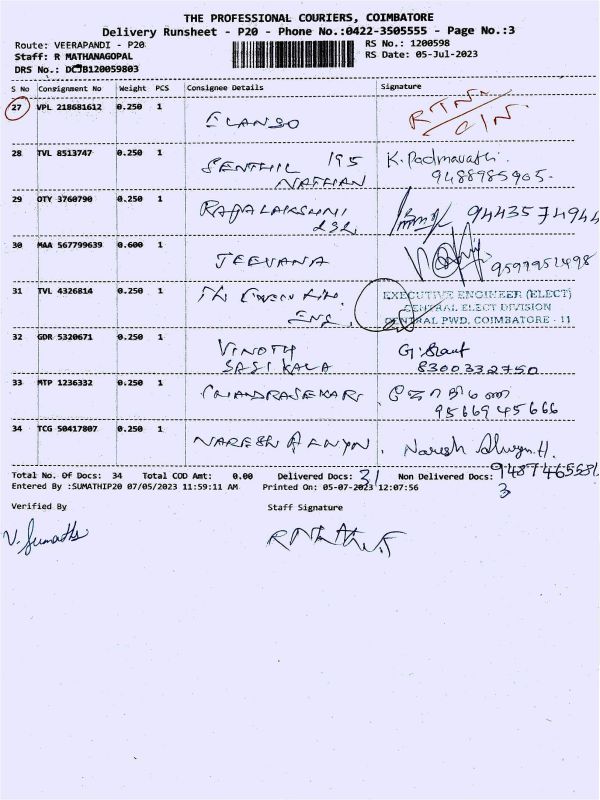 THE PROFESSIONAL COURIERS, COIMBATORE
Delivery Runsheet - P20 - Phone No.:0422-3505555 - Page No.:3
Route: VEERAPANDI - P20 RS No.: 1200598
Staff: R MATHANAGOPAL RS Date: 05-Jul-2023
DRS No.: DCJB120059803
S No Consignment No Weight PCS Consignee Details Signature
27 VPL 218681612 0.250 1 ELANGO RTN
28 TVL 8513747 0.250 1 SENTHIL 195 K. Padmavathi.
NATHAN 9488985905-
29 OTY 3760790 0.250 1 RAJALAKSHMI 9443574944
232
30 MAA 567799639 0.600 1 JEEVANA 9597951498
31 TVL 4326814 0.250 1 EXECUTIVE ENGINEER (ELECT)
ENG. CENTRAL ELECT DIVISION
CENTRAL PWD, COIMBATORE - 11
32 GDR 5320671 0.250 1 VINOTH
SASIKALA 8300332750
33 MTP 1236332 0.250 1 CHANDRASEKAR.
9566945666
34 TCG 50417807 0.250 1 NARESH ALWYN. Naresh Alwyn.H.
Total No. Of Docs: 34 Total COD Amt: 0.00 Delivered Docs: 31 Non Delivered Docs: 3
Entered By :SUMATHIP20 07/05/2023 11:59:11 AM Printed On: 05-07-2023 12:07:56
Verified By Staff Signature
V. Sumathi